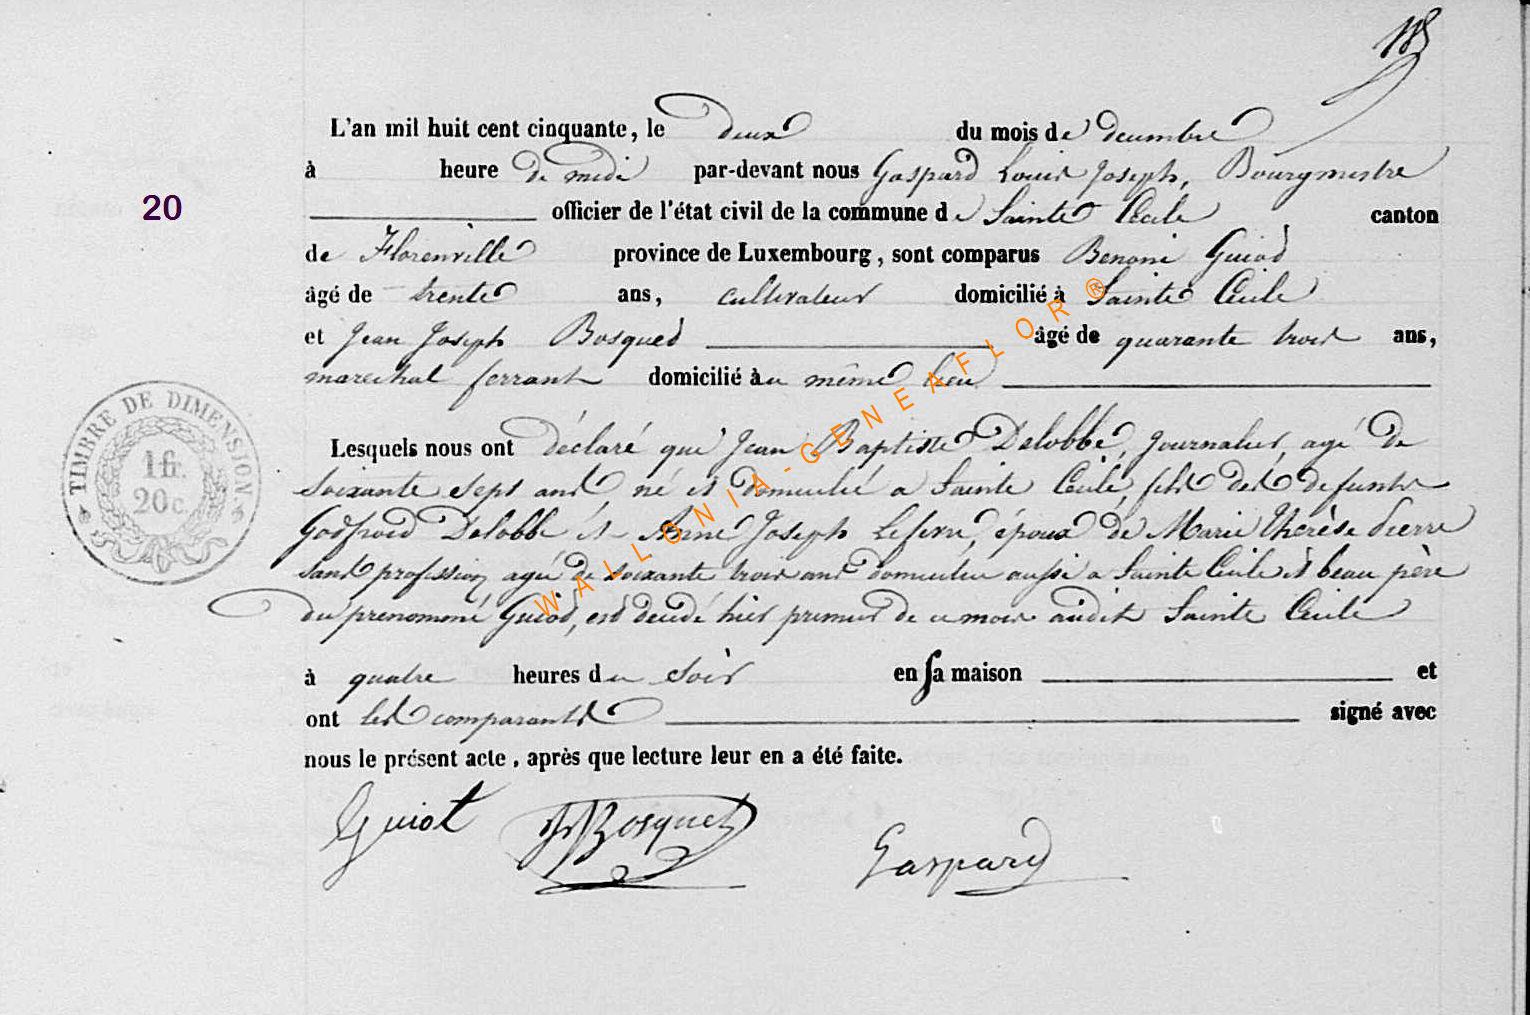 118
L'an mil huit cent cinquante, le deux du mois de decembre
à heure de midi par-devant nous Gaspard Louis Joseph, Bourgmestre
20
officier de l'état civil de la commune de Sainte Cecile canton
de Florenville province de Luxembourg, sont comparus Benoni Guiot
âgé de trente ans, cultivateur domicilié à Sainte Cécile
et Jean Joseph Bosquet âgé de quarante trois ans,
marechal ferrant domicilié au même lieu
Lesquels nous ont déclaré que Jean Baptiste Delobbe, Journalier, agé de
soixante sept ans né et domicilié a Sainte Cécile, fils des defunts
Godfroid Delobbe et Anne Joseph Lefevre, époux de Marie Thérèse Pierre
sans profession, agée de soixante trois ans domiciliée aussi a Sainte Cécile et beau père
du prenommé Guiot, est decédé hier premier de ce mois audit Sainte Cecile
à quatre heures du soir en sa maison et
ont les comparants signé avec
nous le présent acte, après que lecture leur en a été faite.
Guiot JJ Bosquet Gaspard
TIMBRE DE DIMENSION.
1 fr.
20 c.
WALLONIA-GENEAFLOR ®